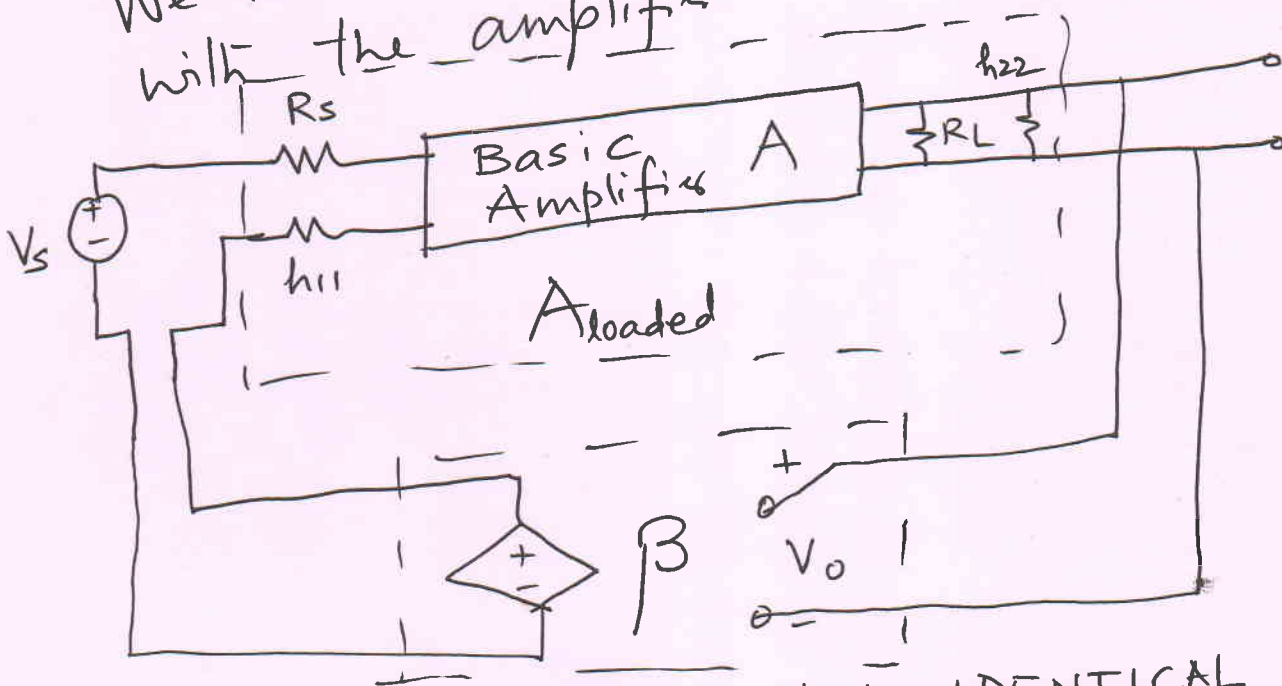 We
with the amplifi
h22
Rs
Basic
Amplifier
A
RL
Vs
h11
Aloaded
+
β
Vo
-
IDENTICAL